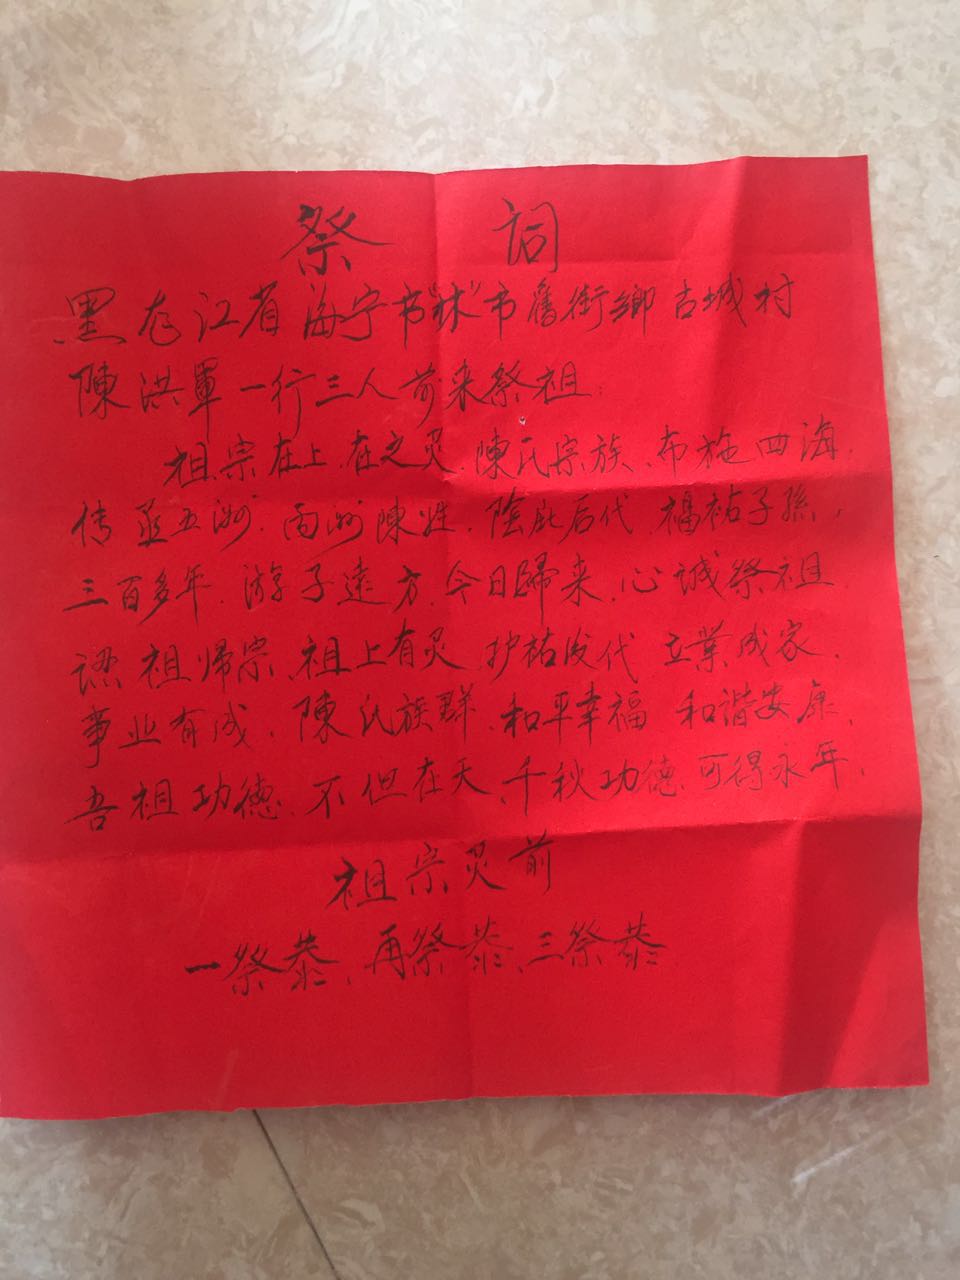 祭 詞
黑龙江省海宁市"林"市舊街鄉古城村
陳洪軍一行三人前来祭祖:
祖宗在上、在之灵、陳氏宗族、布施四海、
传承五洲、陳姓、陰庇后代、福祐子孫、
三百多年、游子遠方、今日歸来、心诚祭祖、
認祖归宗、祖上有灵 护祐后代 立業成家、
事业有成、陳氏族群、和平幸福 和谐安康、
吾祖功德、不但在天、千秋功德、可得永年、
祖宗灵前
一祭恭、再祭恭、三祭恭